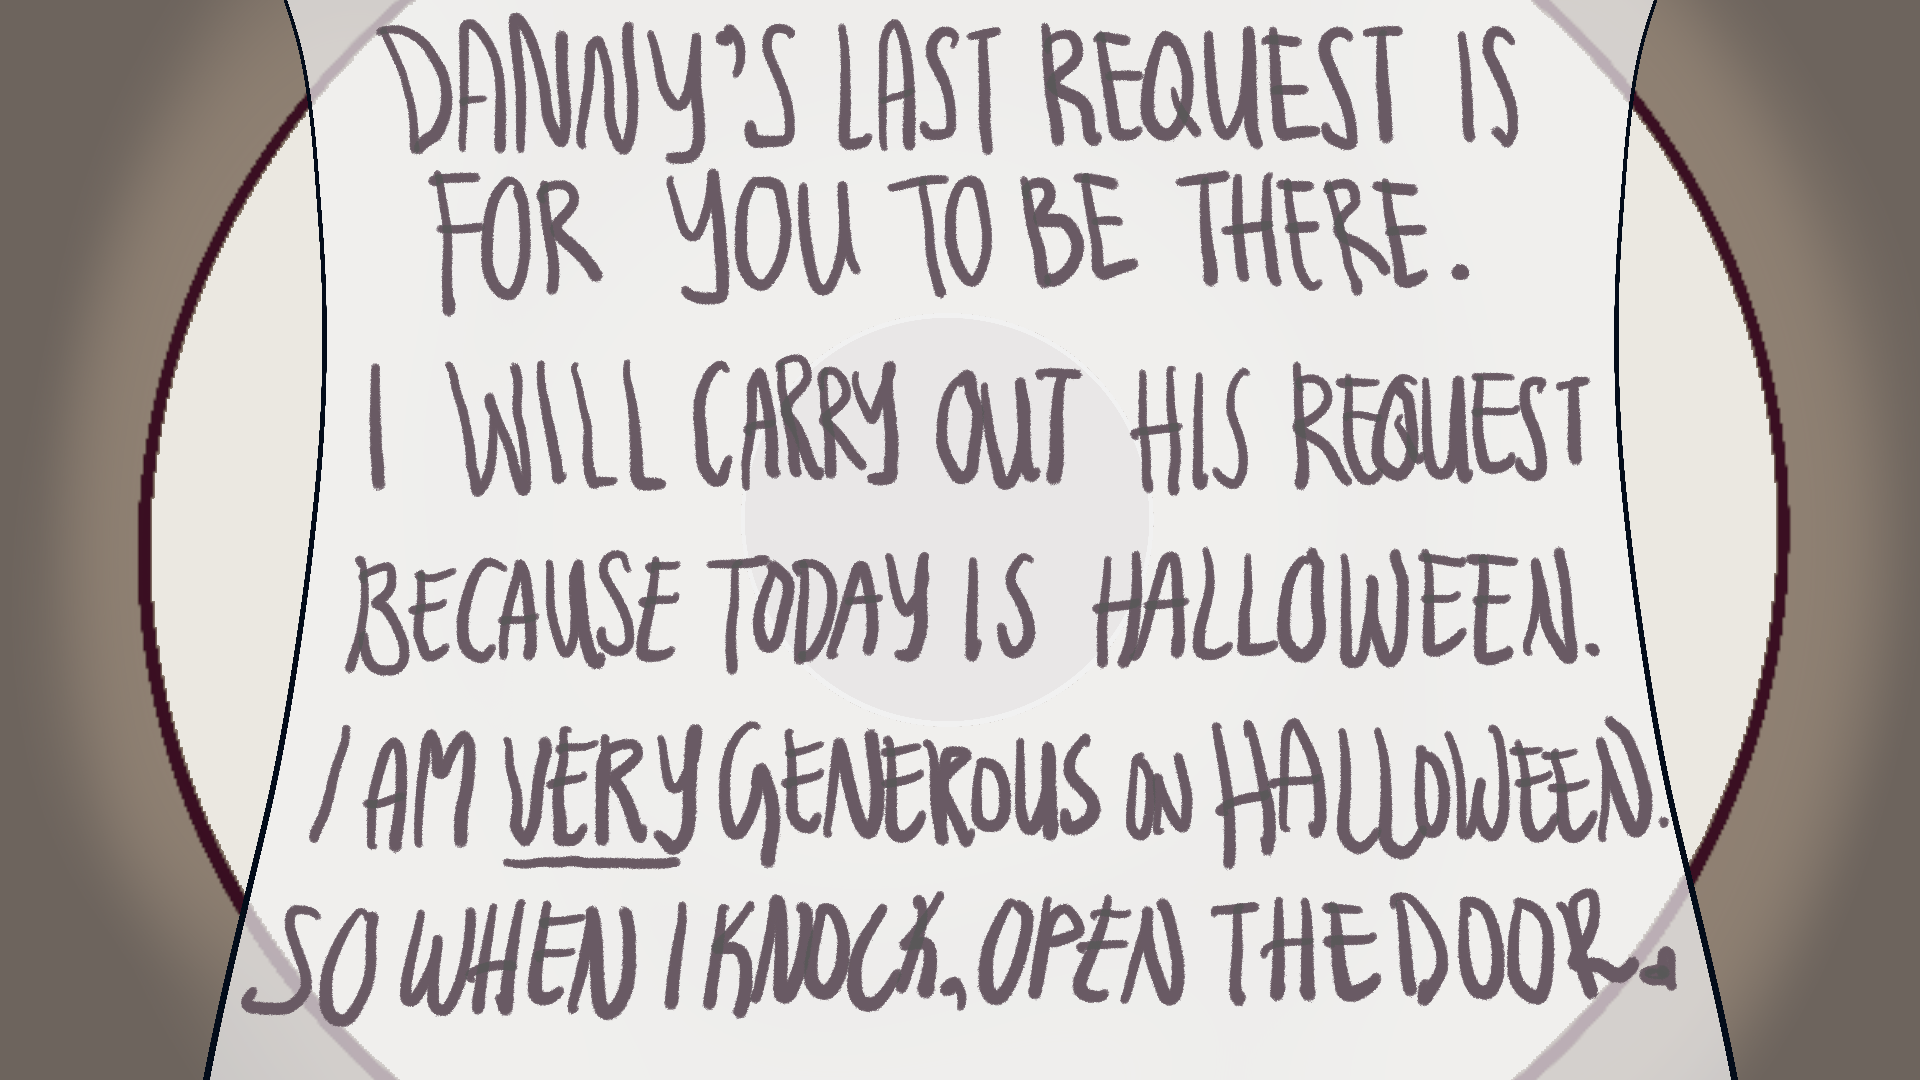 DANNY'S LAST REQUEST IS
FOR YOU TO BE THERE.
I WILL CARRY OUT HIS REQUEST
BECAUSE TODAY IS HALLOWEEN.
I AM VERY GENEROUS ON HALLOWEEN.
SO WHEN I KNOCK, OPEN THE DOOR.